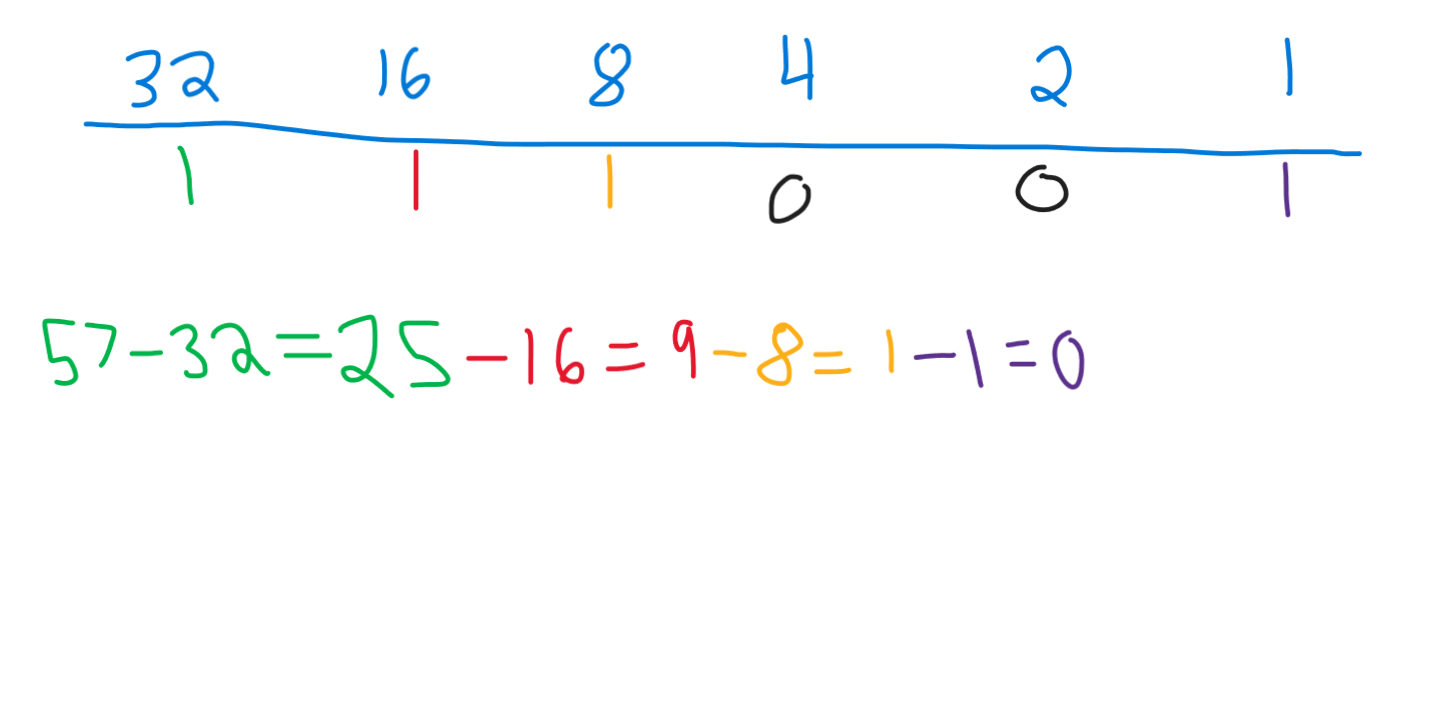 32 16 8 4 2 1
1 1 1 0 0 1
57-32=25-16=9-8=1-1=0